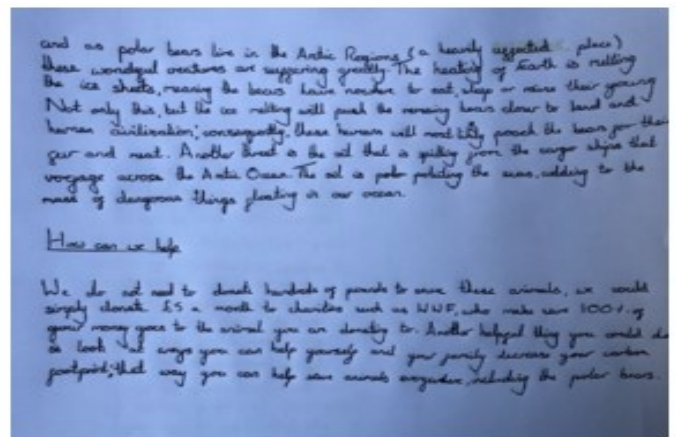 and as polar bears live in the Arctic Regions (a heavily affected place)
these wonderful creatures are suffering greatly. The heating of Earth is melting
the ice sheets, meaning the bears have nowhere to eat, sleep or raise their young
Not only this, but the ice melting will push the remaining bears closer to land and
human civilisation; consequently, these humans will most likely poach the bears for their
fur and meat. Another threat is the oil that is spilling from the cargo ships that
voyage across the Arctic Ocean. The oil is polluting the seas, adding to the
mass of dangerous things floating in our ocean.
How can we help
We do not need to donate hundreds of pounds to save these animals, we could
simply donate £5 a month to charities such as WWF, who make sure 100% of
your money goes to the animal you are donating to. Another helpful thing you could do
is look at ways you can help yourself and your family decrease your carbon
footprint; that way you can help save animals everywhere, including the polar bears.